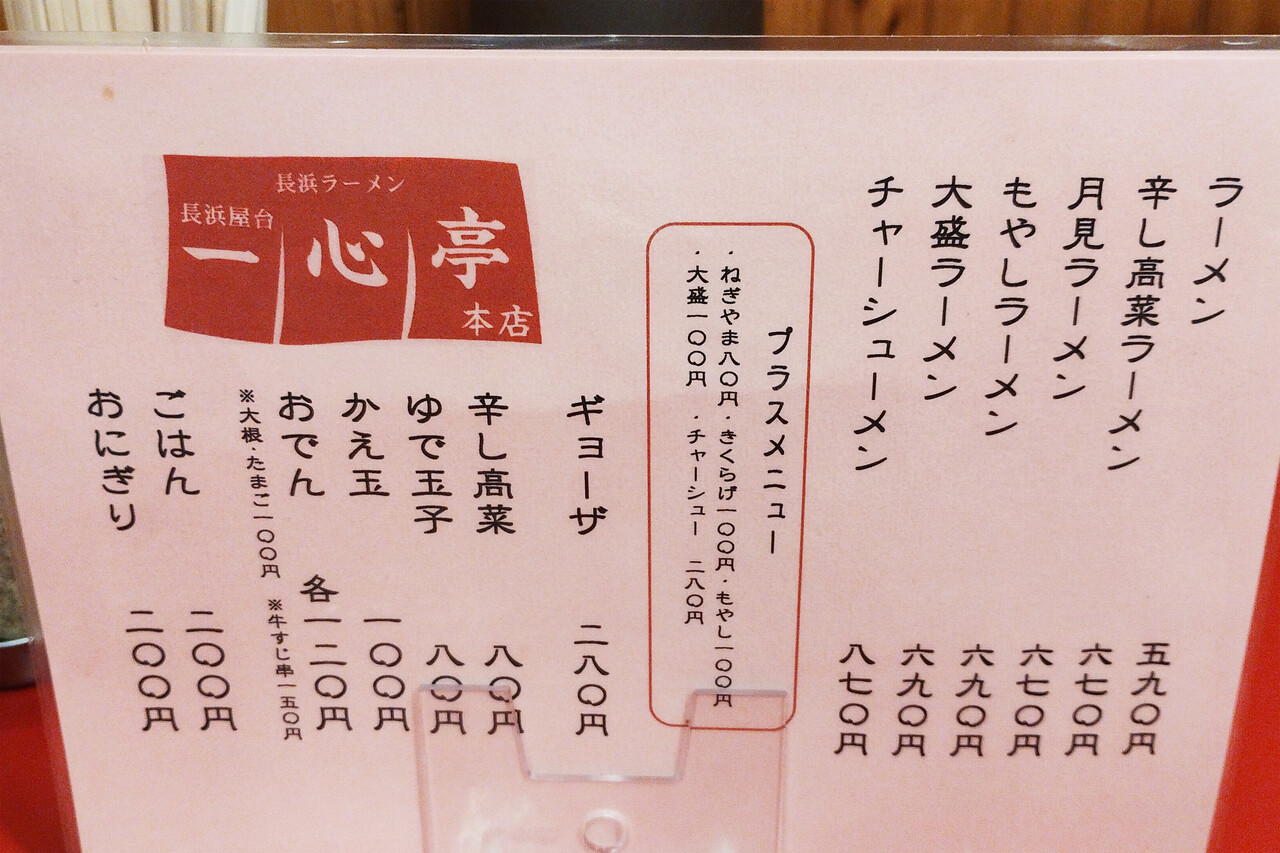 ラーメン 五九〇円
辛し高菜ラーメン 六七〇円
月見ラーメン 六七〇円
もやしラーメン 六九〇円
大盛ラーメン 六九〇円
チャーシューメン 八七〇円
プラスメニュー
・ねぎやま八〇円・きくらげ一〇〇円・もやし一〇〇円
・大盛一〇〇円 ・チャーシュー 二八〇円
長浜ラーメン
長浜屋台
一心亭
本店
ギョーザ 二八〇円
辛し高菜 八〇円
ゆで玉子 八〇円
かえ玉 一〇〇円
おでん 各一二〇円
※大根・たまご一〇〇円 ※牛すじ串一五〇円
ごはん 二〇〇円
おにぎり 二〇〇円